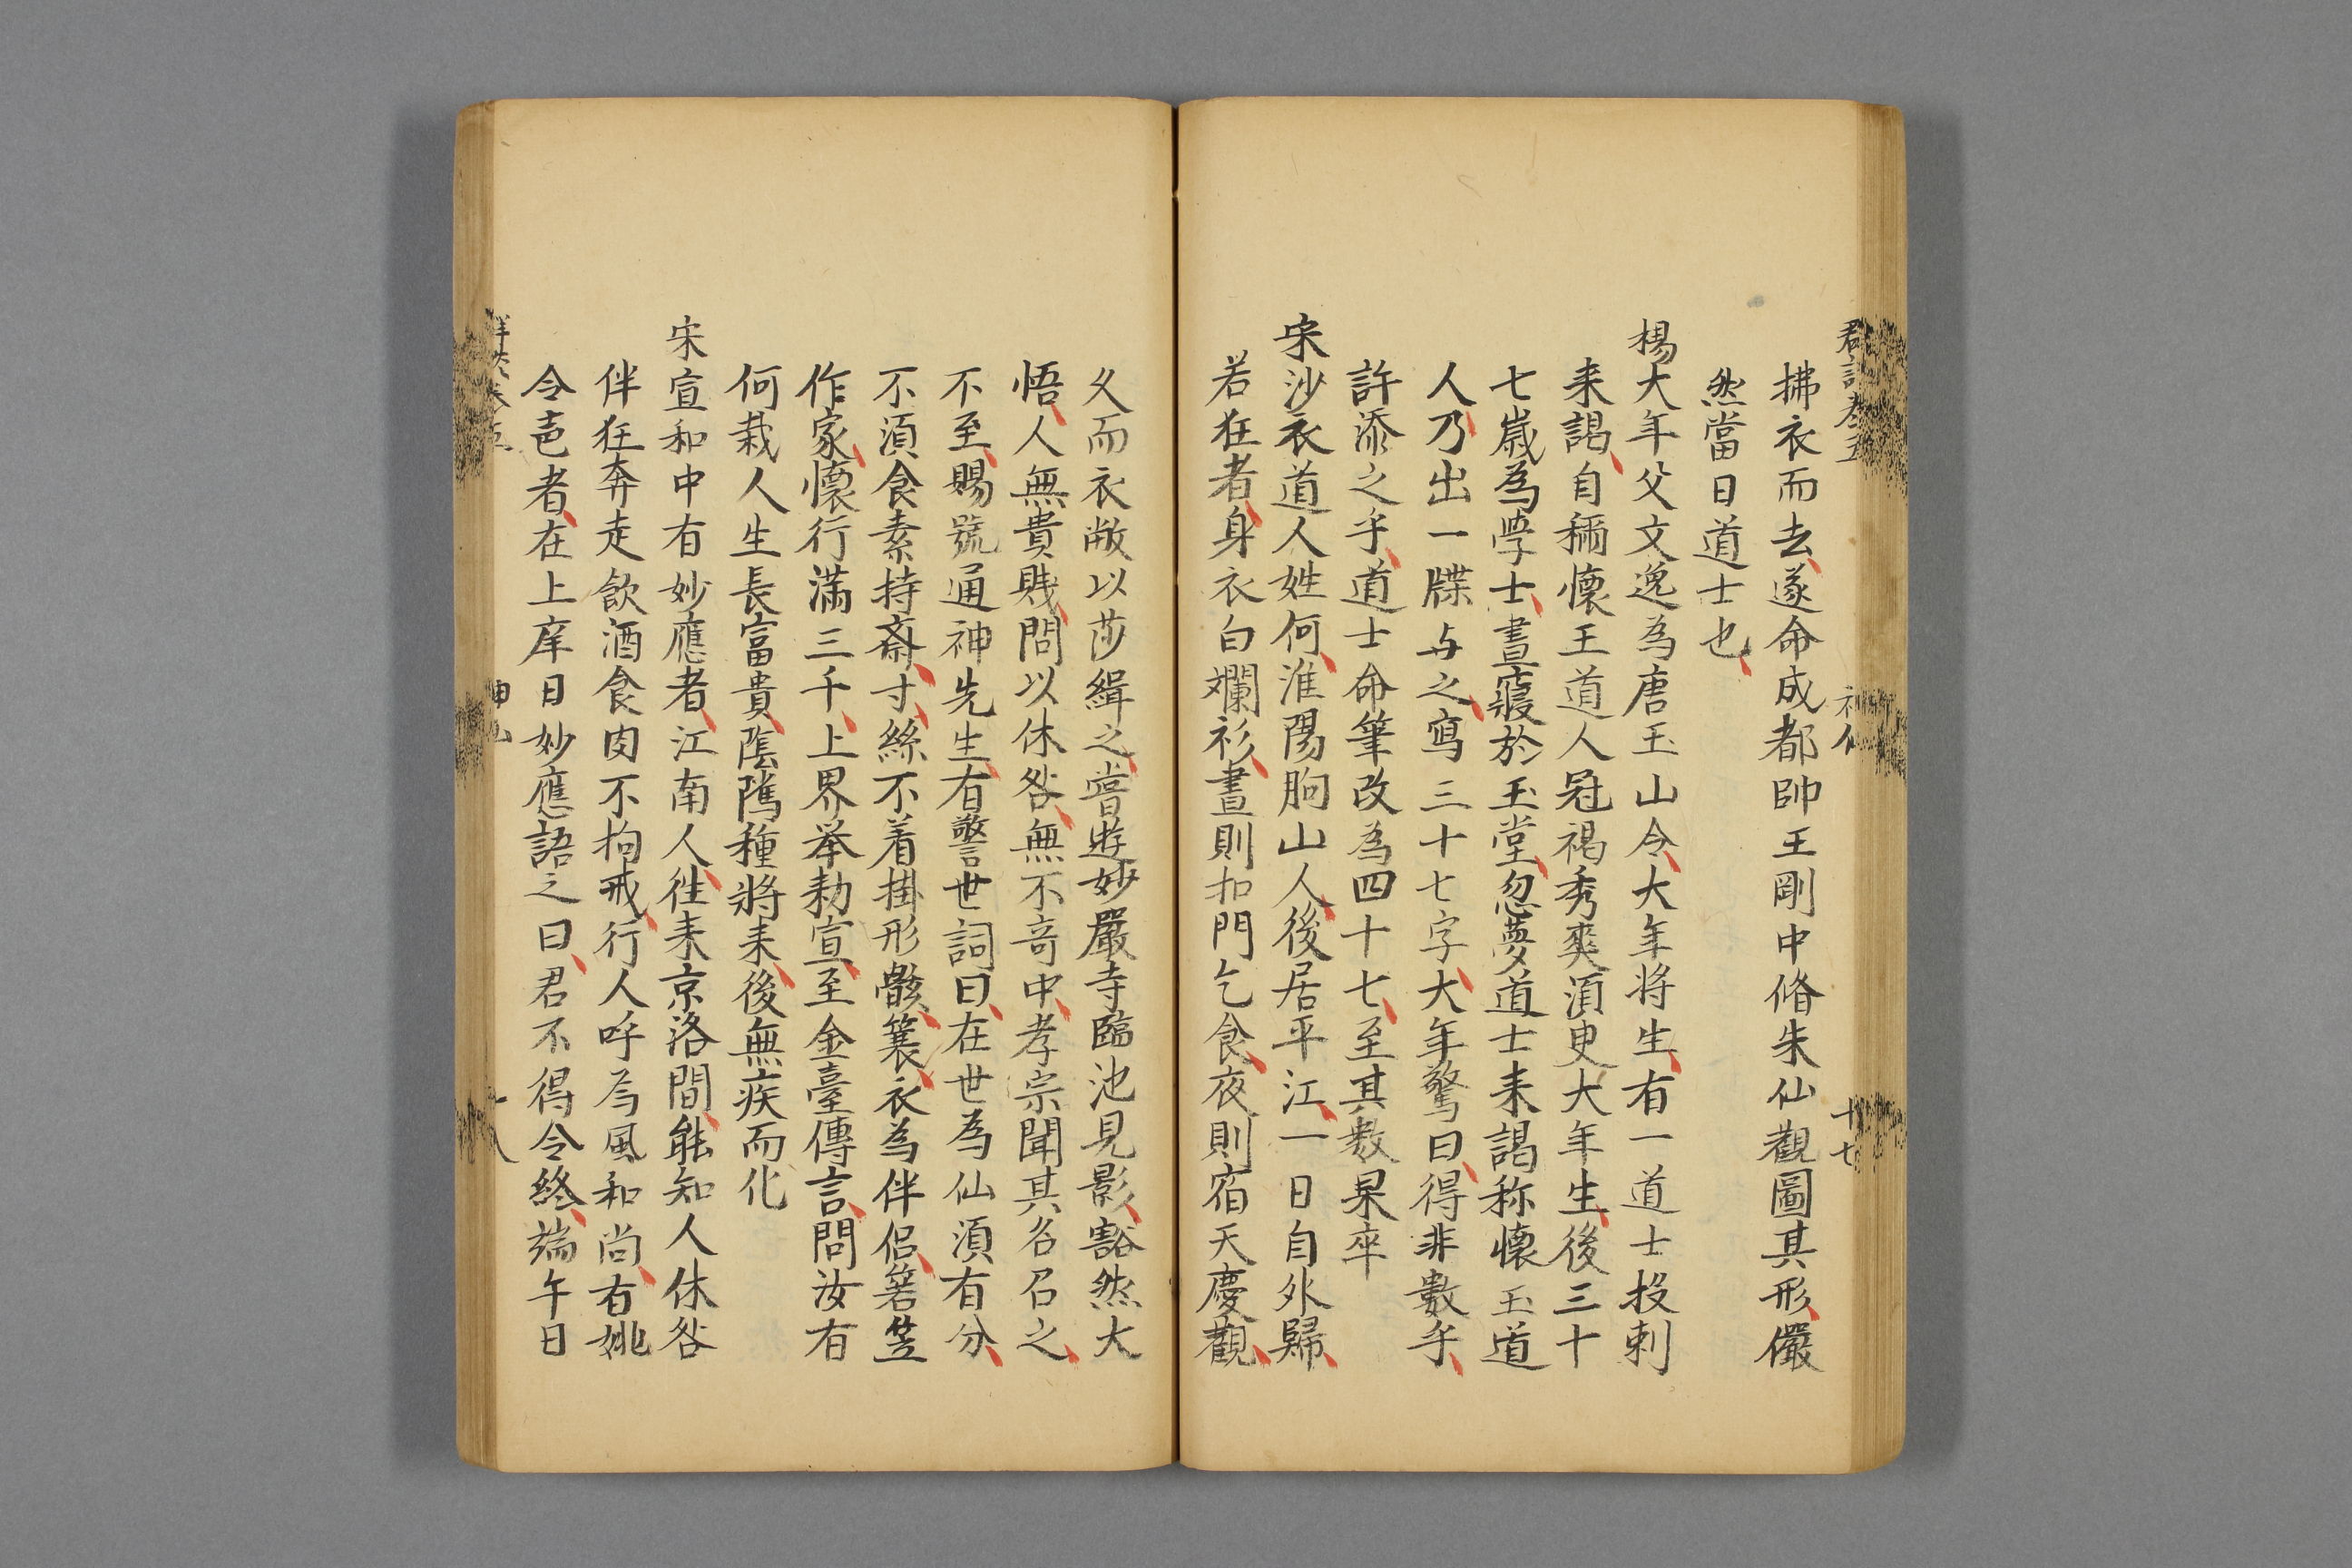 拂衣而去遂命成都帥王剛中脩朱仙觀圖其形儼
然當日道士也
楊大年父文逸為唐玉山令大年将生有一道士投刺
来謁自稱懷玉道人冠褐秀爽湏臾大年生後三十
七歲為學士晝寢於玉堂忽夢道士来謁称懷玉道
人乃出一牒与之寫三十七字大年驚曰得非數乎
許添之乎道士命筆改為四十七至其數果卒
宋沙衣道人姓何淮陽朐山人後居平江一日自外歸
若狂者身衣白襴衫晝則扣門乞食夜則宿天慶觀
久而衣敝以莎緝之嘗遊妙嚴寺臨池見影豁然大
悟人無貴賤問以休咎無不竒中孝宗聞其名召之
不至賜號通神先生有警世詞曰在世為仙湏有分
不湏食素持斎寸絲不着掛形骸簑衣為伴侣箬笠
作家懷行滿三千上界举勑宣至金臺傳言問汝有
何栽人生長富貴陰隲種将来後無疾而化
宋宣和中有妙應者江南人徃来京洛間能知人休咎
佯狂奔走飲酒食肉不拘戒行人呼為風和尚有姚
令壱者在上庠日妙應語之曰君不得令終端午日